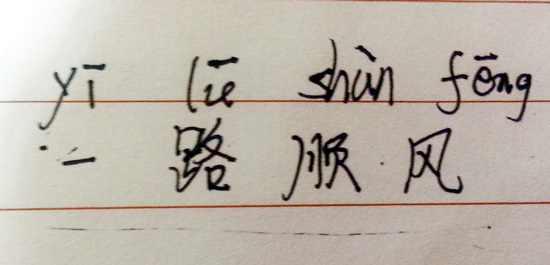 yī lüē shùn fēng
一路顺风